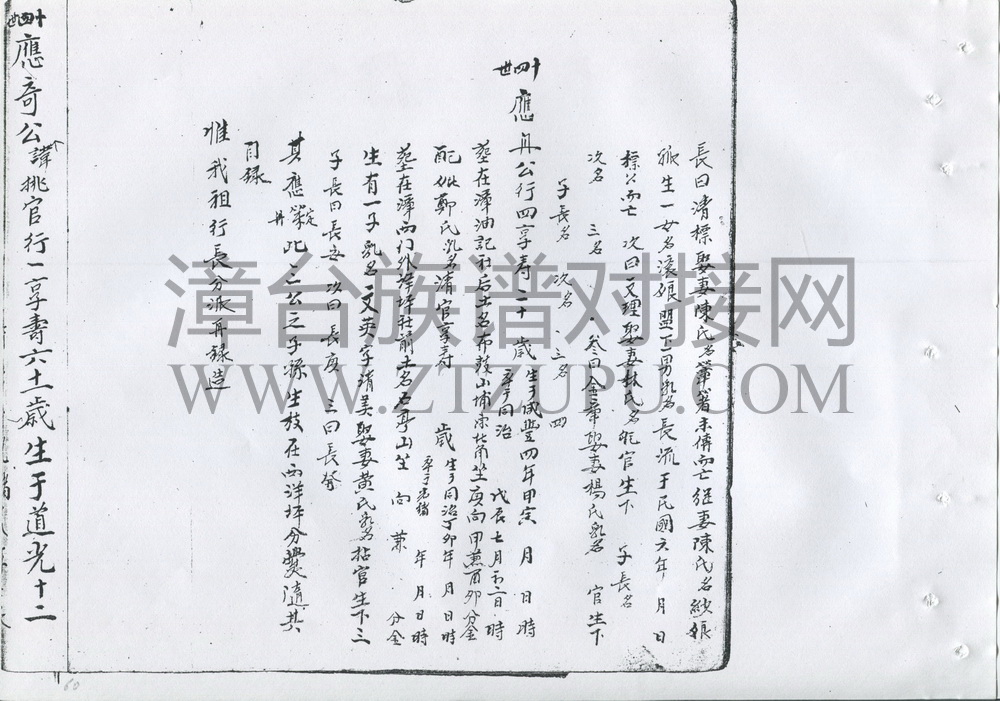 長曰清標娶妻陳氏名 未傳而亡繼妻陳氏名 娘
生一女名 娘 男乳名長流于民國六年 月 日
標公而亡 次曰文理娶妻林氏名 官生下 子長名
次名 三名 叁曰金章娶妻楊氏乳名 官生下
子長名 次名 三名 四
十四世 應再公行四享壽二十歲生于咸豐四年甲寅 月 日 時
卒于同治 戊辰七月 二日 時
葬在漳油 記社后土名 山埔 坐庚向甲兼酉卯分金
配 鄭氏乳名清官享壽 歲生于同治丁卯年 月 日 時
卒于光緒 年 月 日 時
葬在漳西门外 坪社前土名 亭山坐 向 兼 分金
生有一子乳名文英字清美娶妻黃氏乳名 官生下三
子長曰長安 次曰長庚 三曰長發
其應 再 此二公之子孫生枝在西洋坪分爨隨其
目錄
惟我祖行長分派再錄造
十四世 應奇公諱挑官行二享壽六十一歲生于道光十二
漳台族谱对接网
WWW.ZTZUPU.COM
60